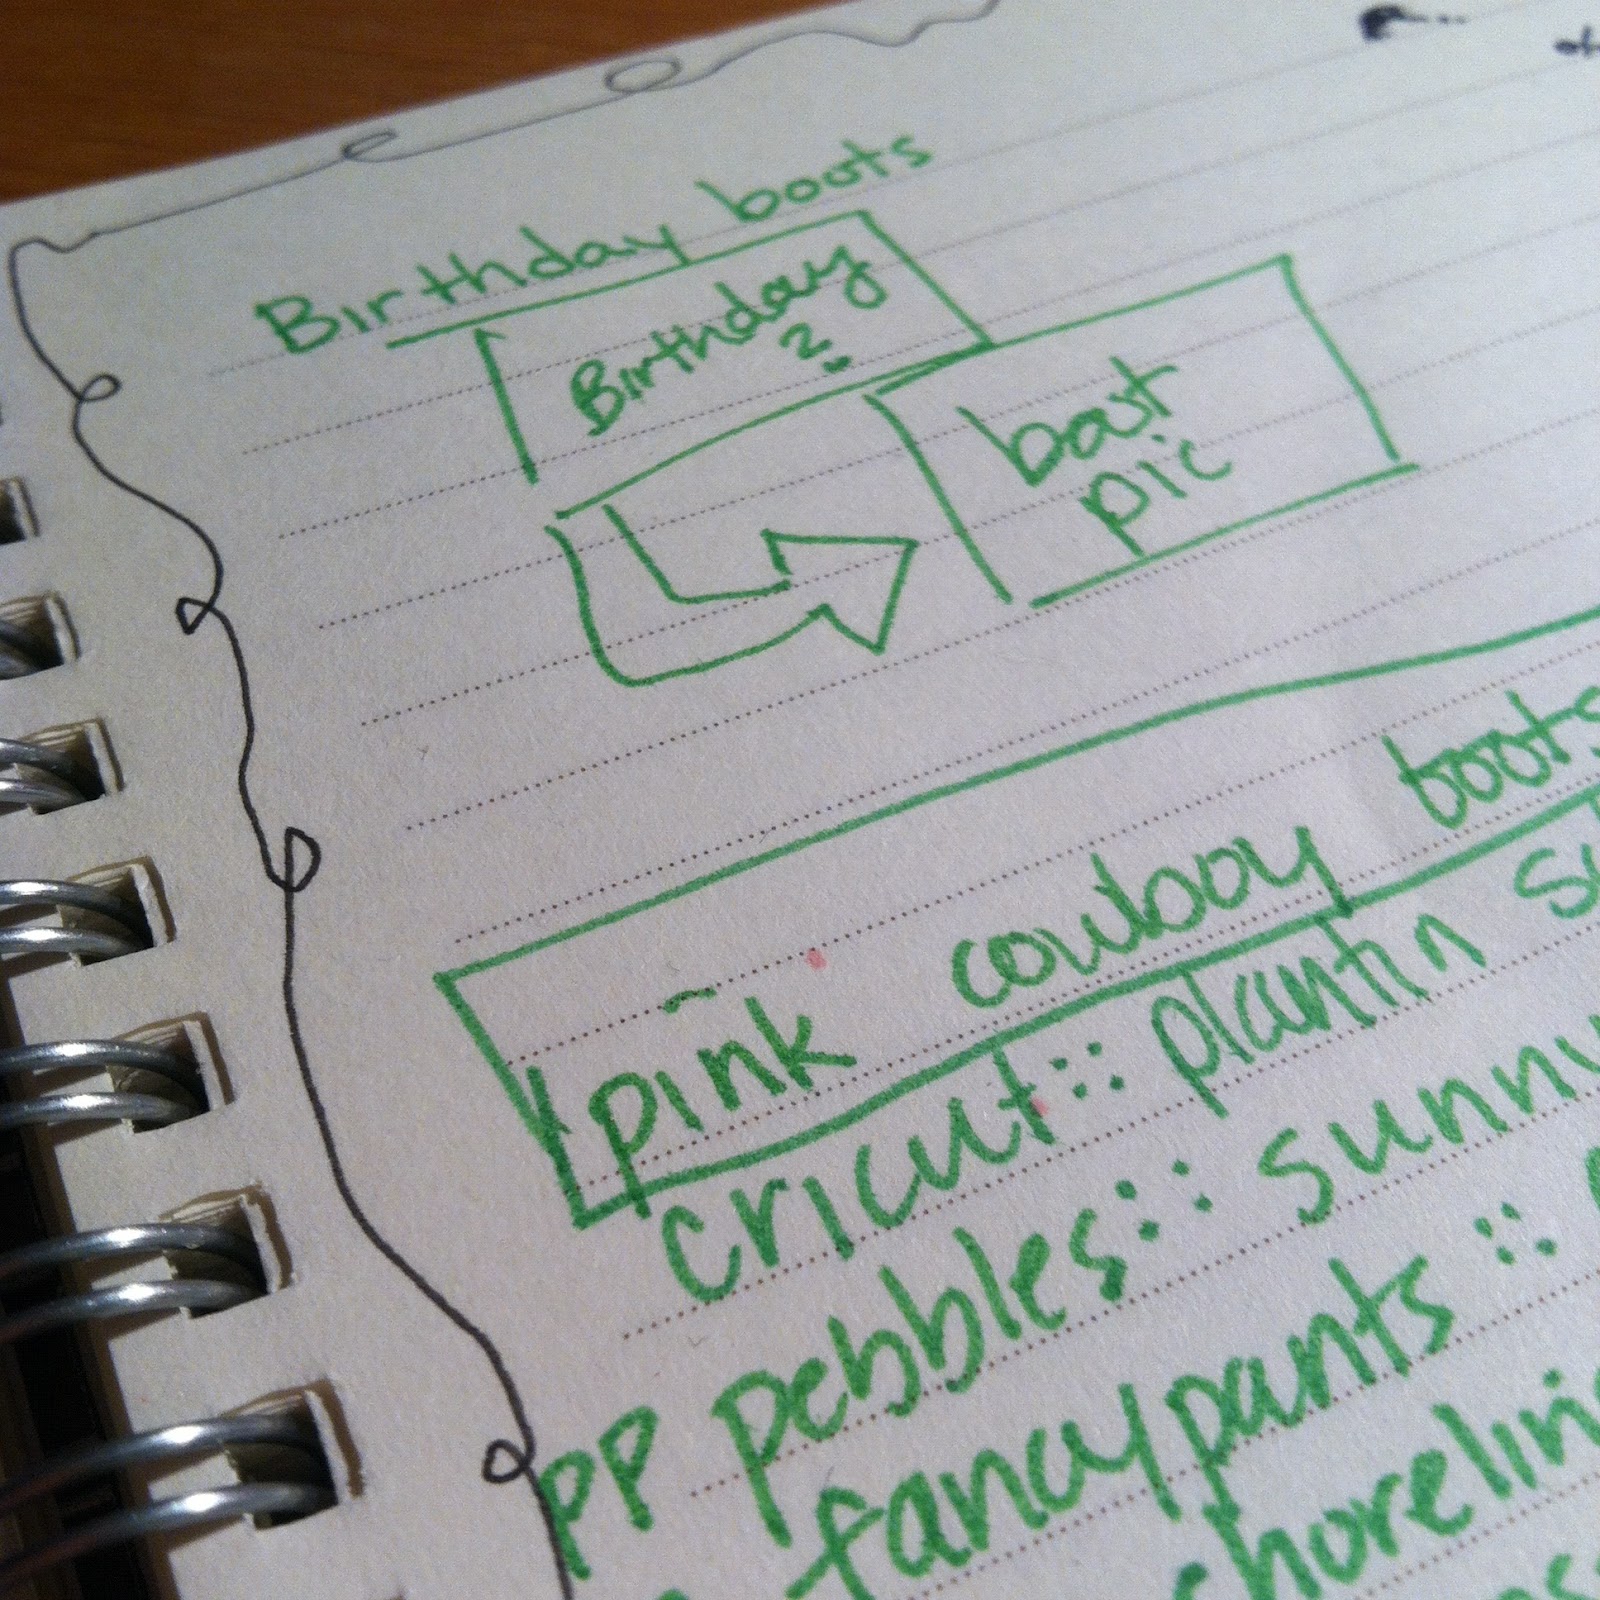 Birthday boots
Birthday
?
boot
pic
pink cowboy boots
cricut :: plantin
pp pebbles :: sunny
fancypants ::